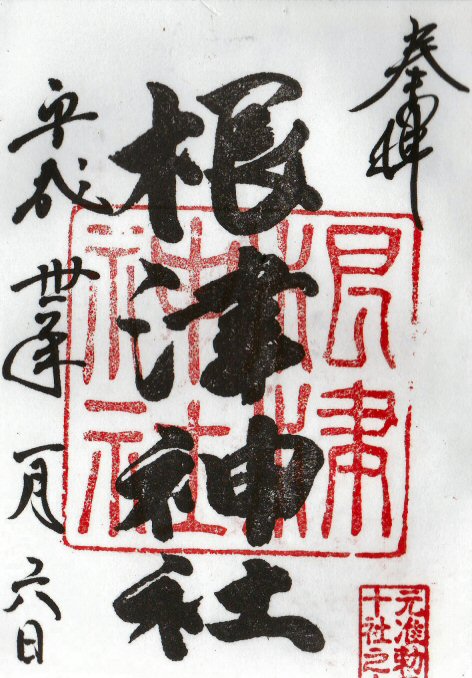 奉拝
根津神社
平成丗年一月六日
根津
神社
元准勅
十社之